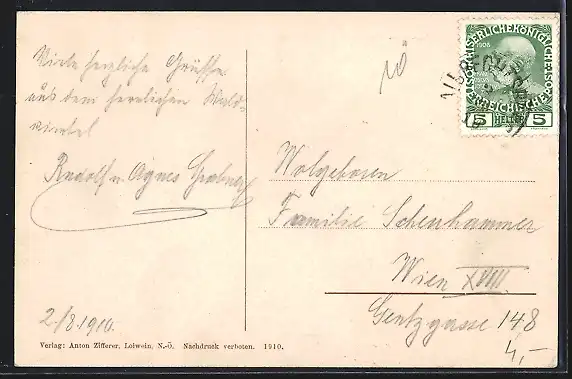 Viele herzliche Grüsse
aus dem herrlichen Wald-
winkel
Rudolf u. Agnes
2/8 1910.
Verlag: Anton Zifferer, Loiwein, N.-Ö. Nachdruck verboten. 1910.
KAISERLICHEKÖNIGLICHE
ÖSTERREICHISCHE
5 HELLER 5
Wolgeboren
Familie Schenhammer
Wien XVIII
Gentzgasse 148
4,-